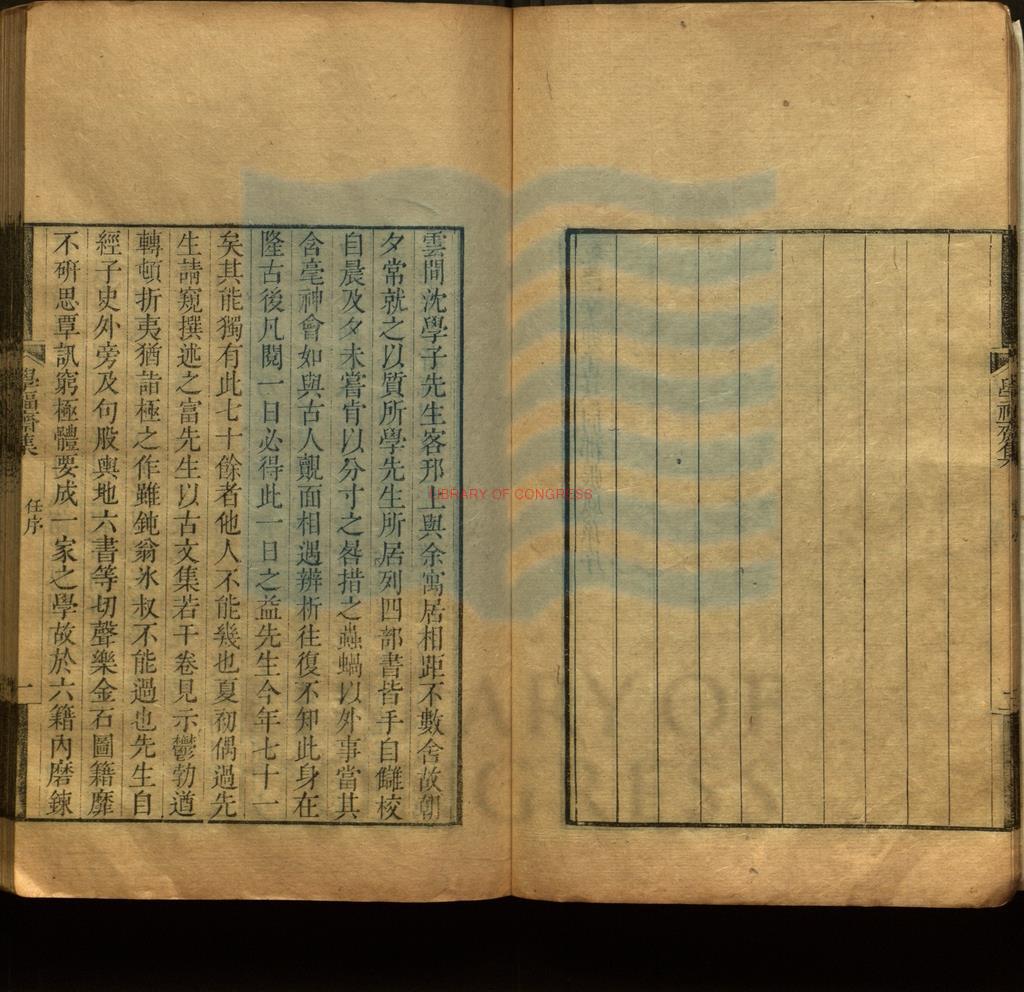 雲間沈學子先生客邗上與余寓居相距不數舍故朝
夕常就之以質所學先生所居列四部書皆手自讎校
自晨及夕未嘗肯以分寸之晷措之蟲蝸以外事當其
含毫神會如與古人覿面相遇辨析往復不知此身在
隆古後凡閱一日必得此一日之益先生今年七十一
矣其能獨有此七十餘者他人不能幾也夏初偶過先
生請窺撰述之富先生以古文集若干卷見示鬱勃遒
轉頓折夷猶詣極之作雖鈍翁氷叔不能過也先生自
經子史外旁及句股輿地六書等切聲樂金石圖籍靡
不硏思覃訊窮極體要成一家之學故於六籍內磨鍊
學福齋集
任序
一
學福齋集
二
LIBRARY OF CONGRESS